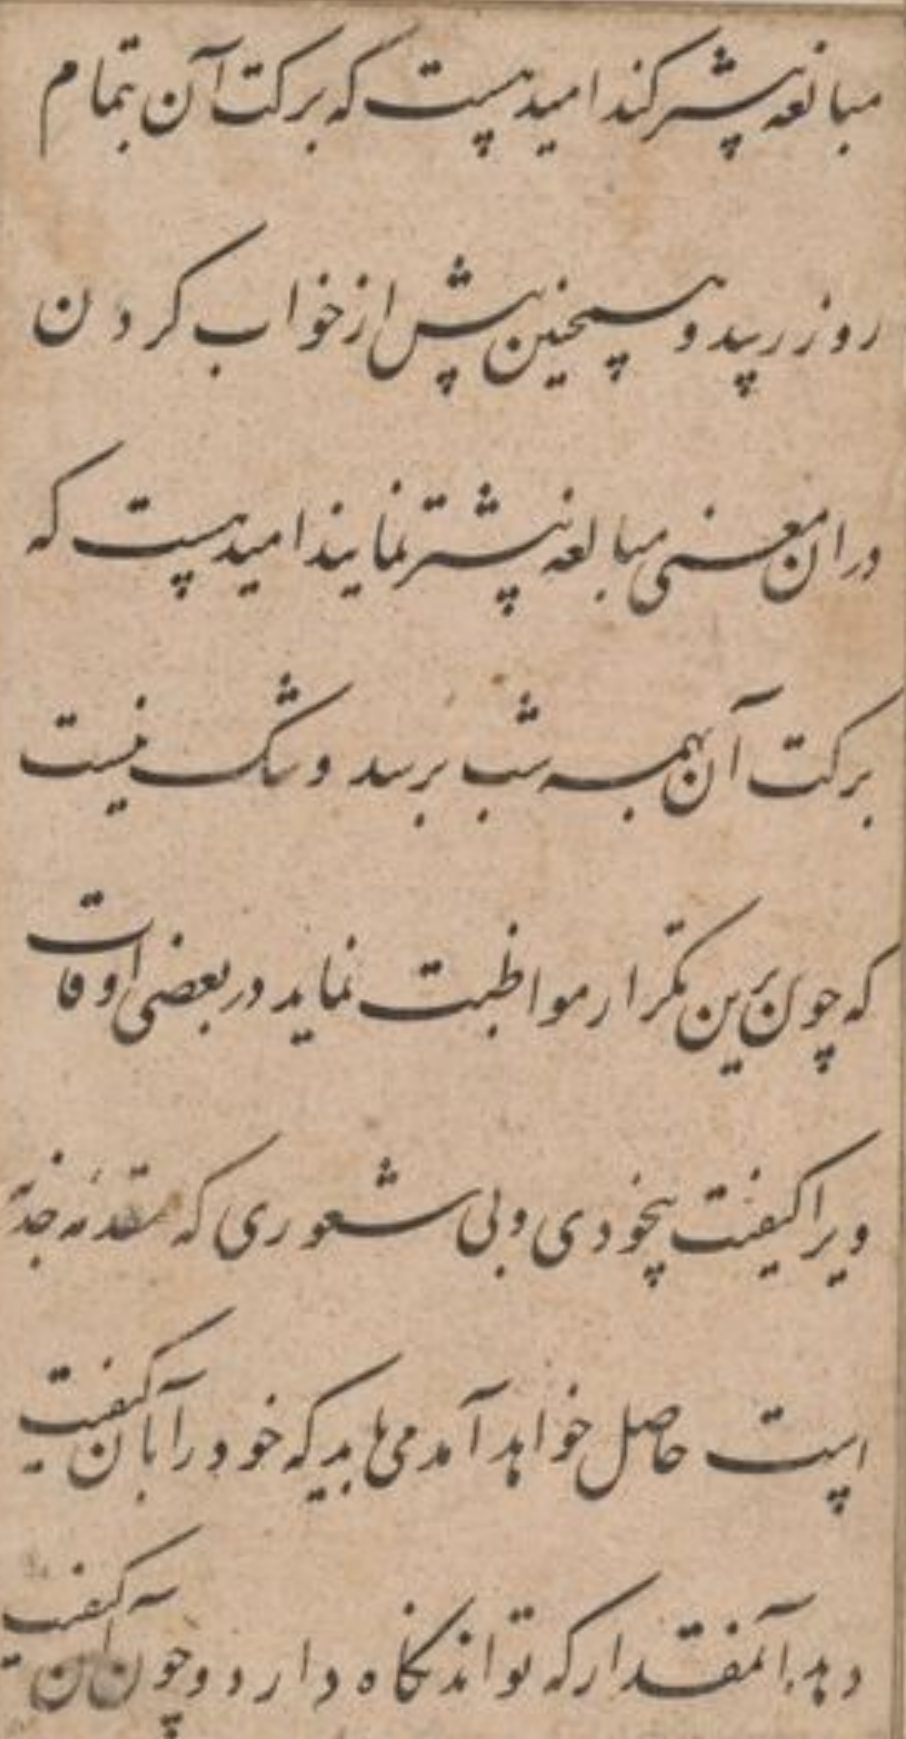 مبالغه بیشتر کند امید هست که برکت آن بتمام
روز رسد و همچنین پیش از خواب کردن
دران معنی مبالغه بیشتر نمایند امید هست که
برکت آن بهمه شب برسد و شک نیست
که چون برین تکرار مواظبت نماید در بعضی اوقات
ویرا کیفیت بیخودی و بی شعوری که مقدمه جذبه
است حاصل خواهد آمد می باید که خود را بآن کیفیت
دهد آنمقدار که تواند نگاه دارد و چون آن کیفیت